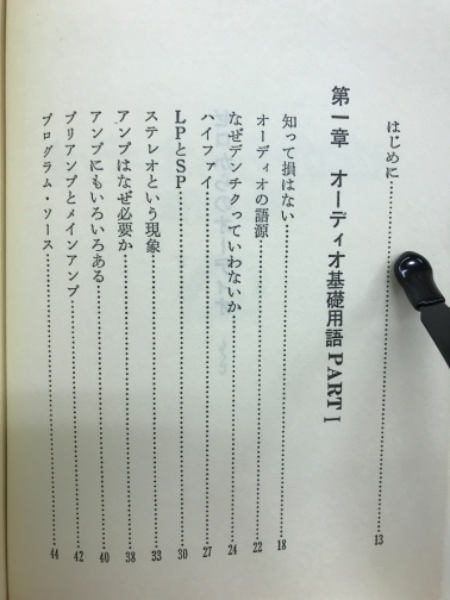 はじめに……………………13
第一章　オーディオ基礎用語 PART I
知って損はない……………………18
オーディオの語源……………………22
なぜデンチクっていわないか……………………24
ハイファイ……………………27
LPとSP……………………30
ステレオという現象……………………33
アンプはなぜ必要か……………………38
アンプにもいろいろある……………………40
プリアンプとメインアンプ……………………42
プログラム・ソース……………………44